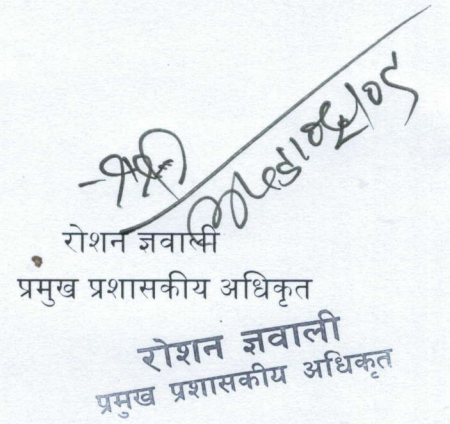 रोशन ज्ञवाली
प्रमुख प्रशासकीय अधिकृत
रोशन ज्ञवाली
प्रमुख प्रशासकीय अधिकृत